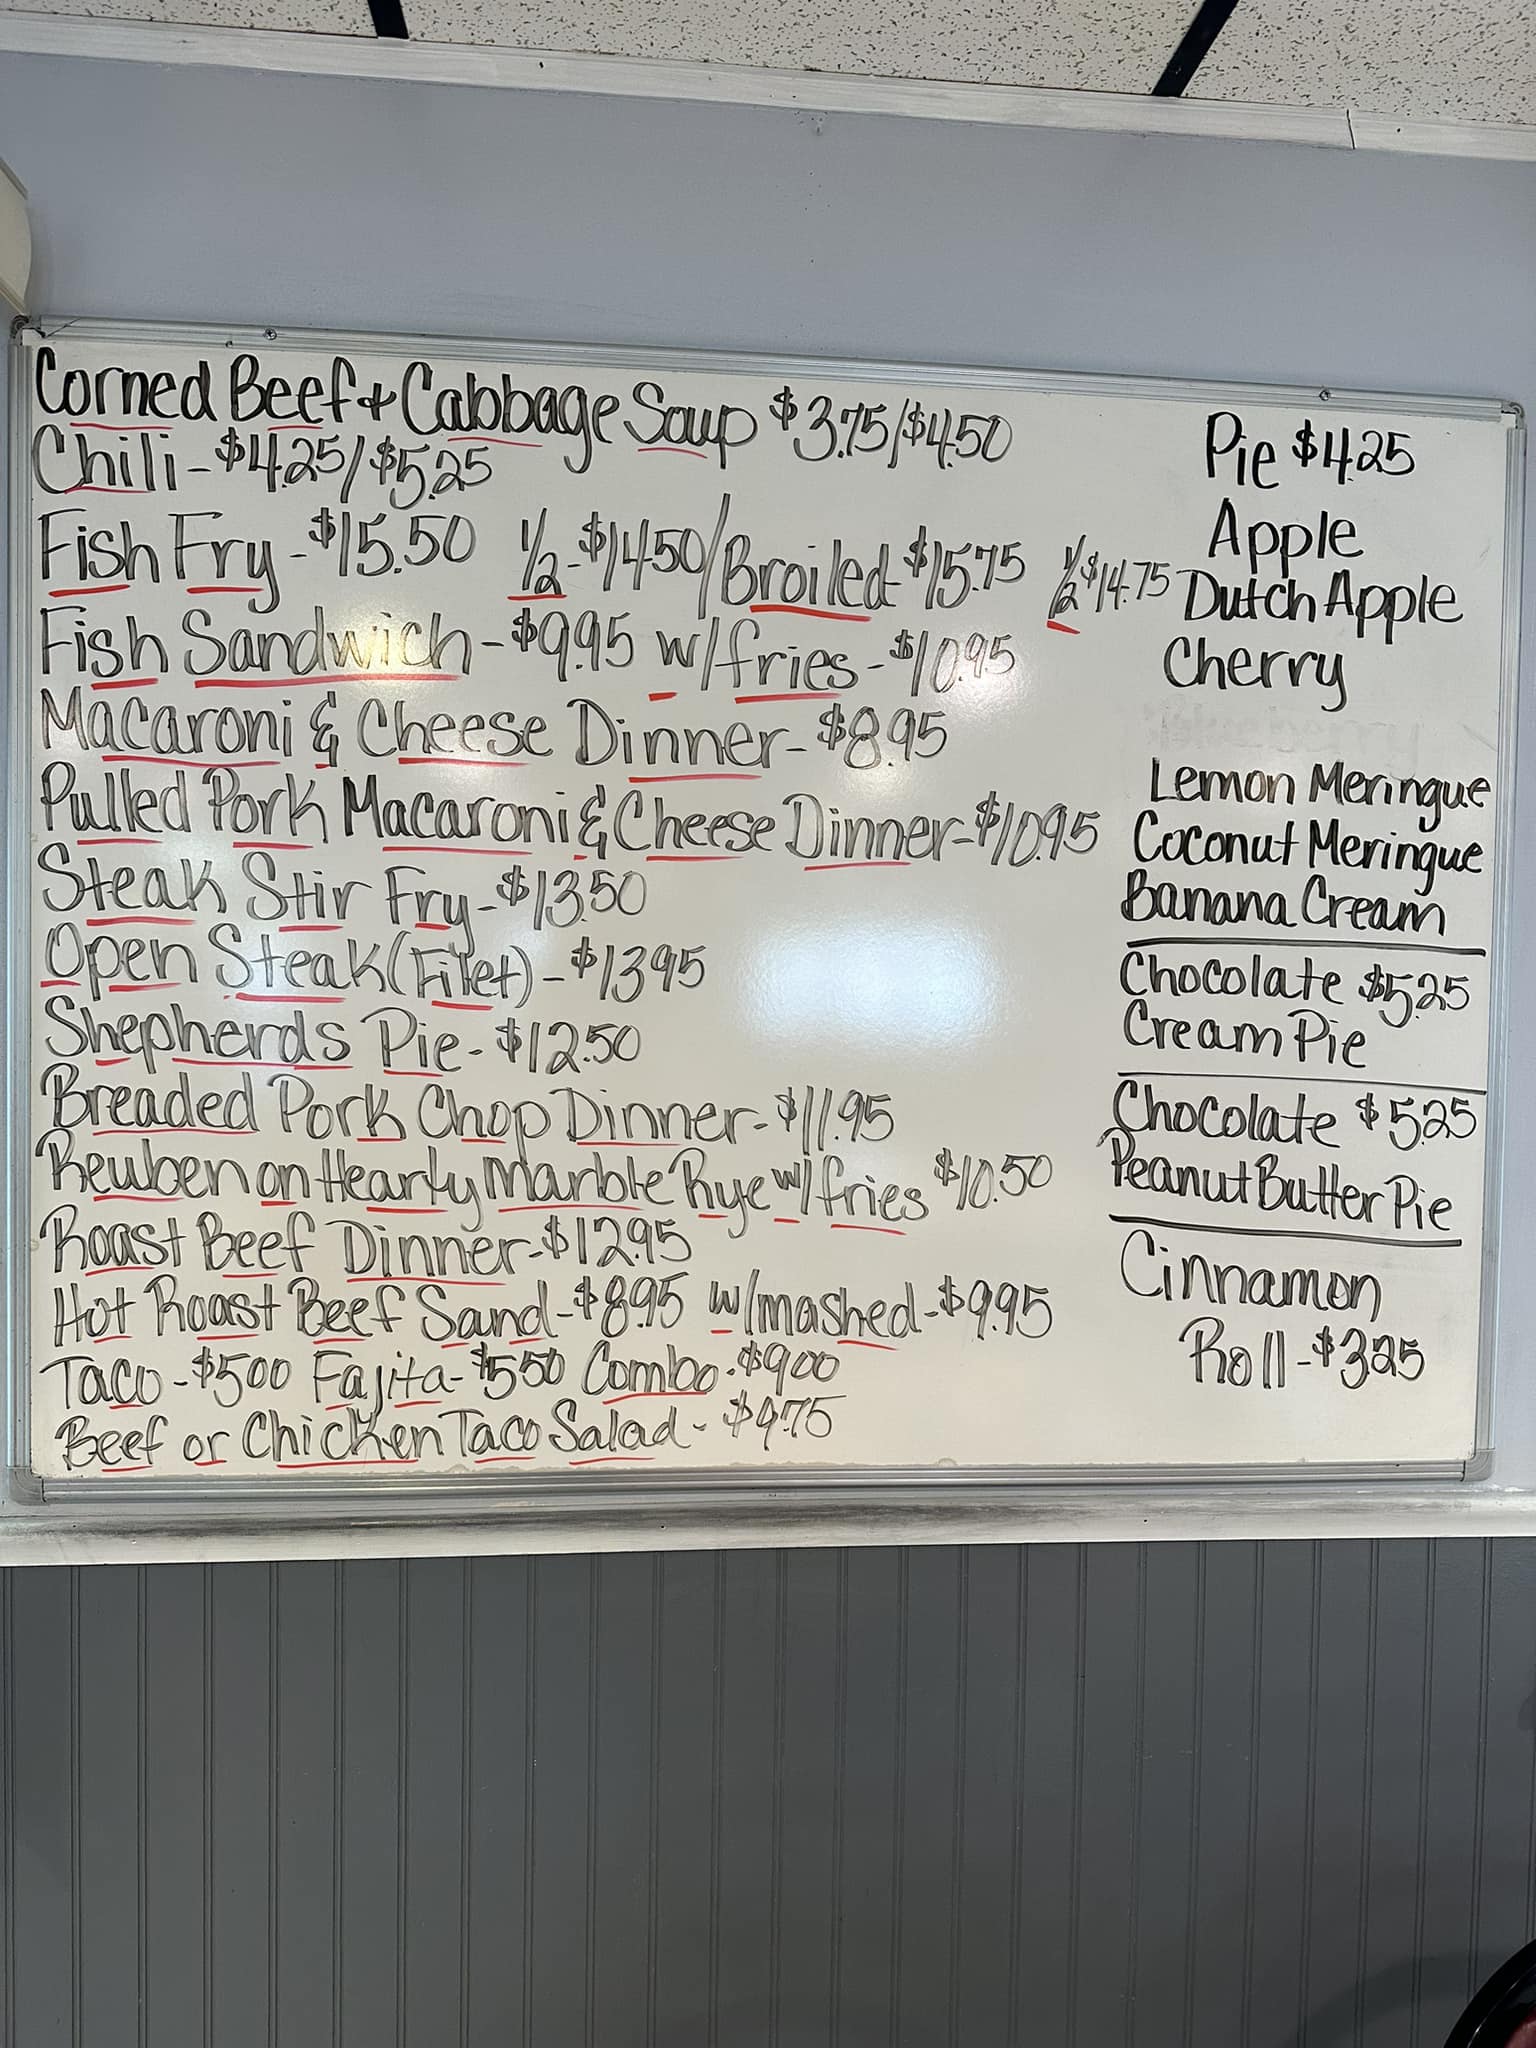 Corned Beef & Cabbage Soup $3.75/$4.50
Chili - $4.25/$5.25
Fish Fry - $15.50 1/2 - $14.50/Broiled - $15.75 1/2 $14.75
Fish Sandwich - $9.95 w/fries - $10.95
Macaroni & Cheese Dinner - $8.95
Pulled Pork Macaroni & Cheese Dinner - $10.95
Steak Stir Fry - $13.50
Open Steak (Filet) - $13.95
Shepherds Pie - $12.50
Breaded Pork Chop Dinner - $11.95
Reuben on Hearty Marble Rye w/fries $10.50
Roast Beef Dinner - $12.95
Hot Roast Beef Sand - $8.95 w/mashed - $9.95
Taco - $5.00 Fajita - $5.50 Combo - $9.00
Beef or Chicken Taco Salad - $9.75
Pie $4.25
Apple
Dutch Apple
Cherry
Lemon Meringue
Coconut Meringue
Banana Cream
Chocolate $5.25
Cream Pie
Chocolate $5.25
Peanut Butter Pie
Cinnamon
Roll - $3.25